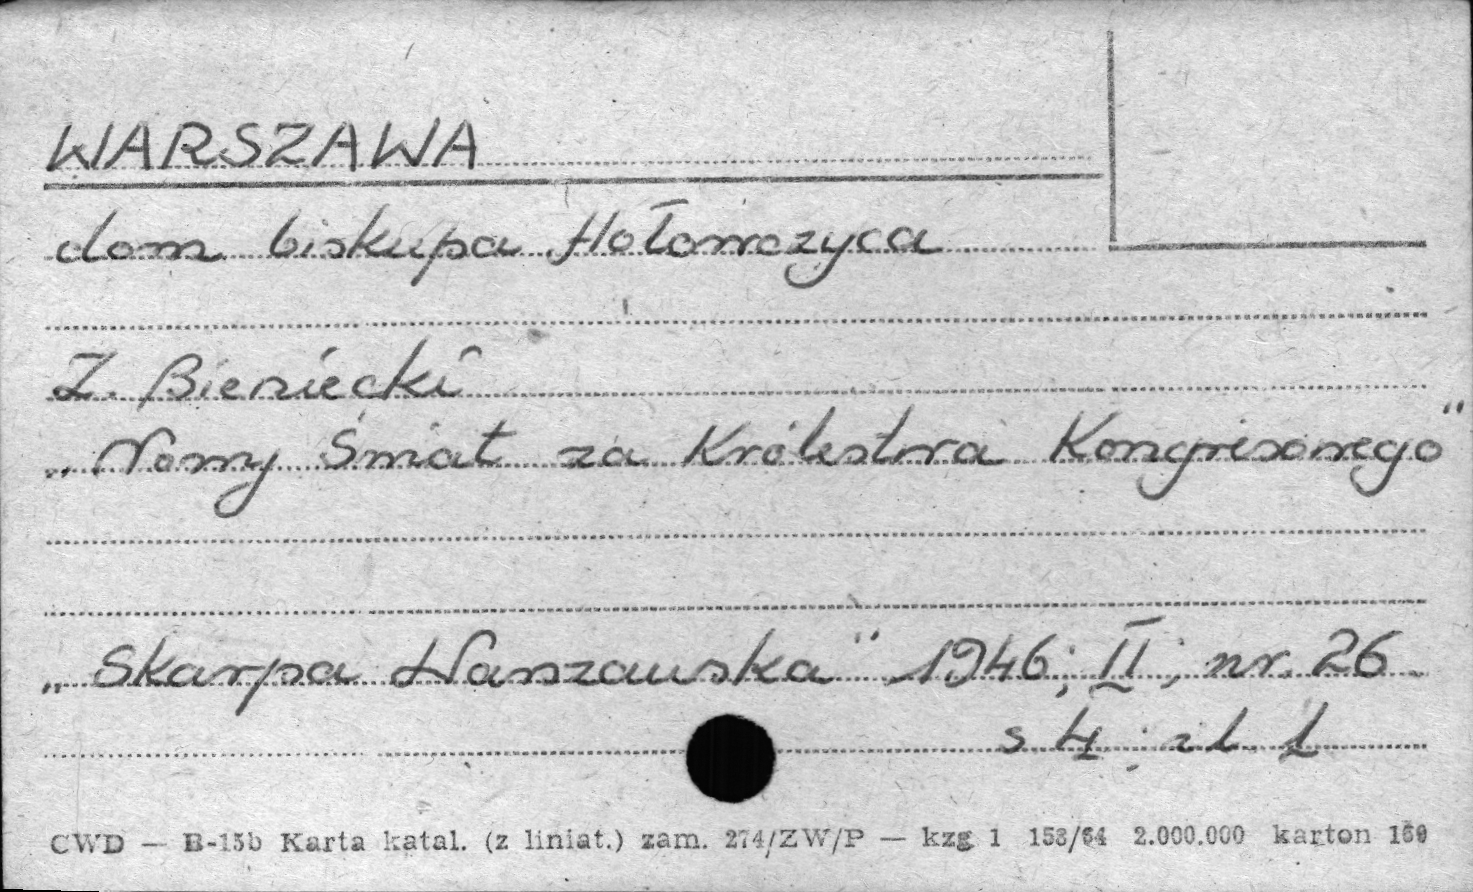 WARSZAWA
dom biskupa Hołowczyca
Z. Bieniecki
„Nowy Świat za Królestwa Kongresowego"
„Skarpa Warszawska" 1946; II; nr. 26
s 4; il. 1
CWD — B-15b Karta katal. (z liniat.) zam. 274/ZW/P — kzg 1 153/64 2.000.000 karton 160